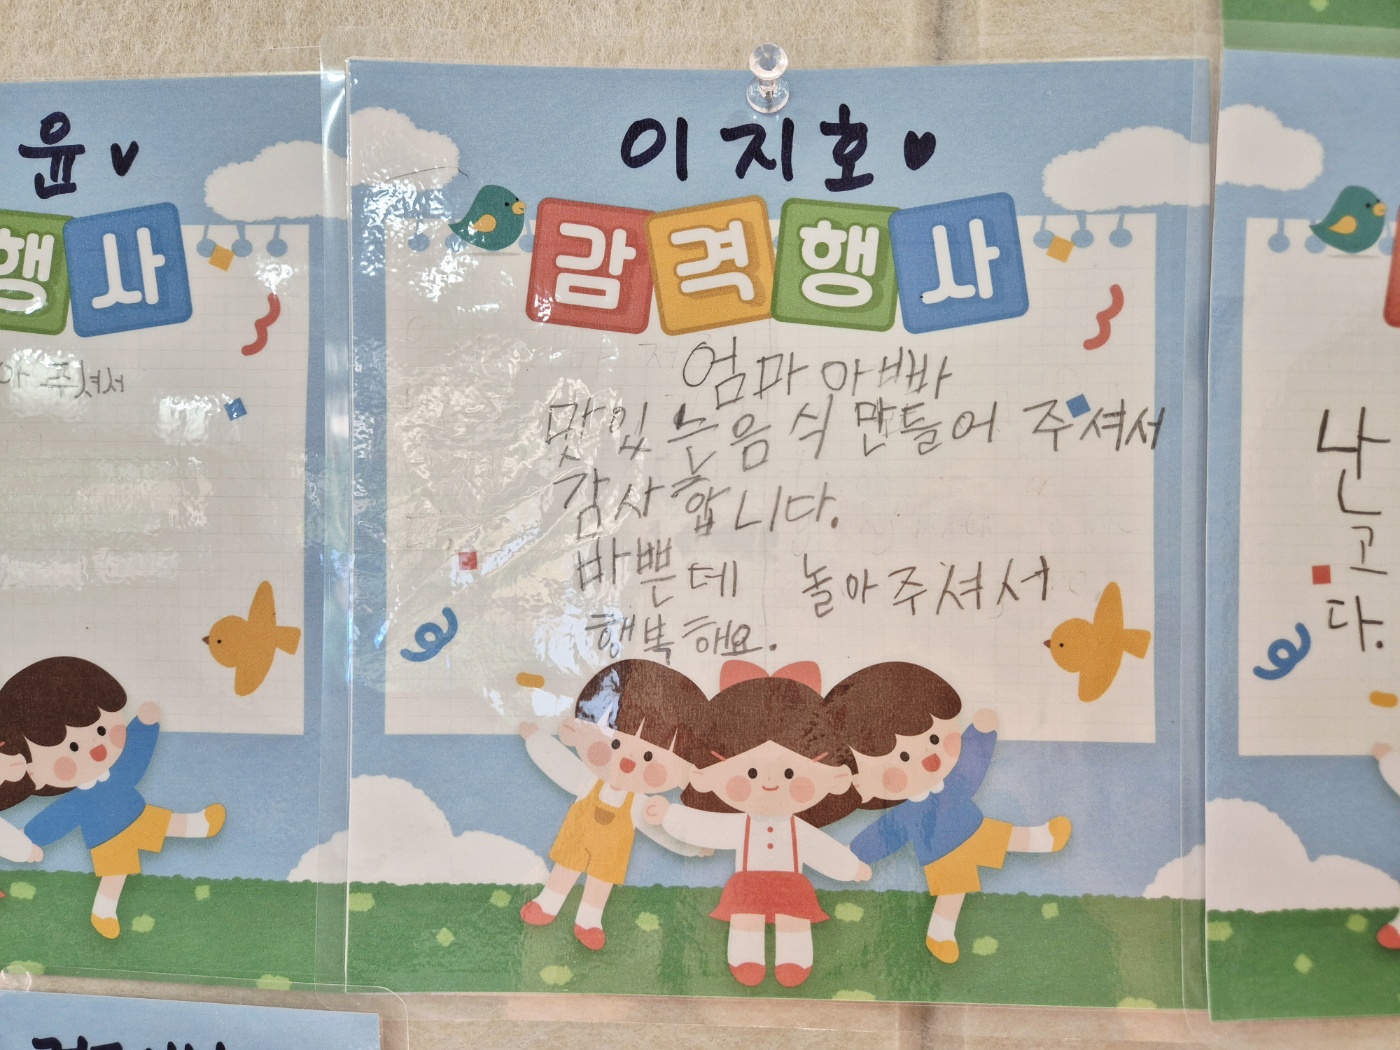 윤♥
행사
아 주셔서
이지호♥
감격행사
엄마 아빠
맛있는음식 만들어 주셔서
감사합니다.
바쁜데 놀아주셔서
행복해요.
난
고
다.